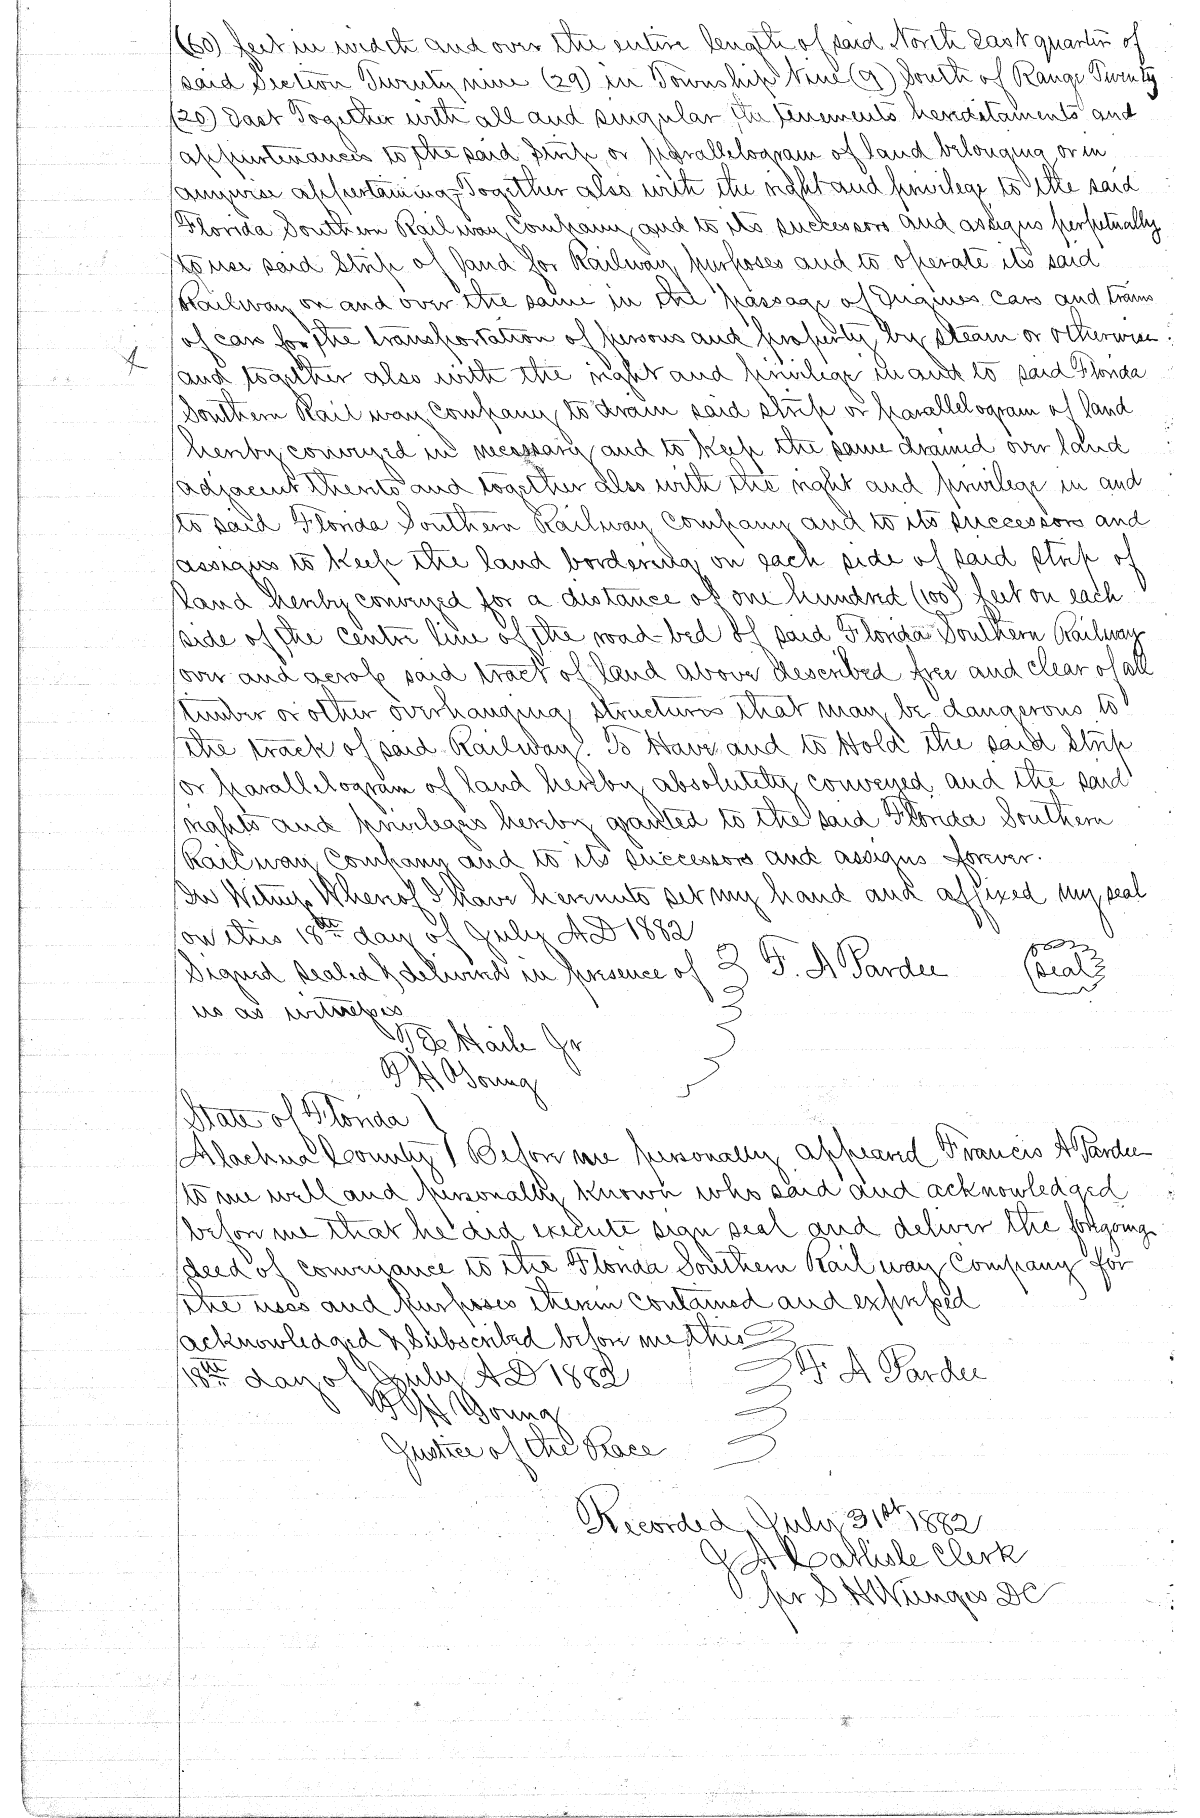 (60) feet in width and over the entire length of said North East quarter of
said Section Twenty nine (29) in Township Nine (9) South of Range Twenty
(20) East Together with all and singular the tenements hereditaments and
appurtenances to the said strip or parallelogram of land belonging or in
anywise appertaining, Together also with the right and privilege to the said
Florida Southern Railway Company and to its successors and assigns perpetually
to use said Strip of land for Railway purposes and to operate its said
Railway on and over the same in the passage of Engines cars and trains
of cars for the transportation of persons and property by steam or otherwise
and together also with the right and privilege in and to said Florida
Southern Rail way Company to drain said strip or parallelogram of land
hereby conveyed in necessary and to keep the same drained over land
adjacent thereto and together also with the right and privilege in and
to said Florida Southern Railway Company and to its successors and
assigns to keep the land bordering on each side of said strip of
land hereby conveyed for a distance of one hundred (100) feet on each
side of the centre line of the road-bed of said Florida Southern Railway
over and across said tract of land above described free and clear of all
timber or other overhanging structures that may be dangerous to
the track of said Railway. To Have and to Hold the said Strip
or parallelogram of land hereby absolutely conveyed and the said
rights and privileges hereby granted to the said Florida Southern
Railway Company and to its successors and assigns forever.
In Witness Whereof I have hereunto set my hand and affixed my seal
on this 18th day of July AD 1882
Signed sealed & delivered in presence of F. A Pardee (seal)
us as witnesses
Haile Jr
H Young
State of Florida
Alachua County Before me personally appeared Francis A Pardee
to me well and personally known who said and acknowledged
before me that he did execute sign seal and deliver the foregoing
deed of conveyance to the Florida Southern Rail way Company for
the uses and purposes therein contained and expressed
acknowledged & Subscribed before me this
18th day of July AD 1882 F. A Pardee
H Young
Justice of the Peace
Recorded July 31st 1882
J A Carlisle Clerk
pr S H Wienges DC